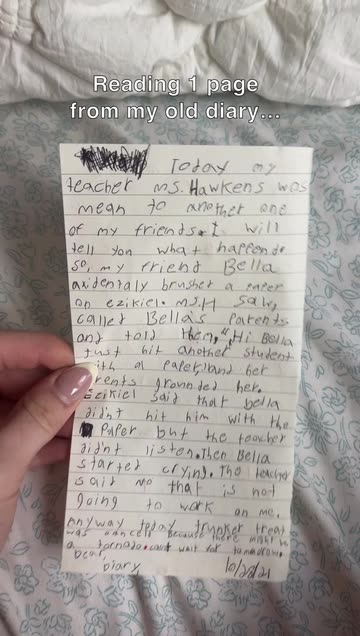 Reading 1 page
from my old diary...
Today my
teacher Ms. Hawkens was
mean to another one
of my friends. I will
tell you what happend.
so, my friend Bella
axidentaly brusher a paper
on ezikiel. Ms.H saw,
called Bella's parents
and told them, "Hi Bella
Just hit another student
with a paper." and her
parents grounded her.
Ezikiel said that bella
didn't hit him with the
Paper but the teacher
didn't listen. Then Bella
started crying. The teacher
said no that is not
going to work on me.
Anyway today trunker treat
was cancels because there might be
a tornado. can't wait for tomorrow.
Dear,
Diary 10/20/21